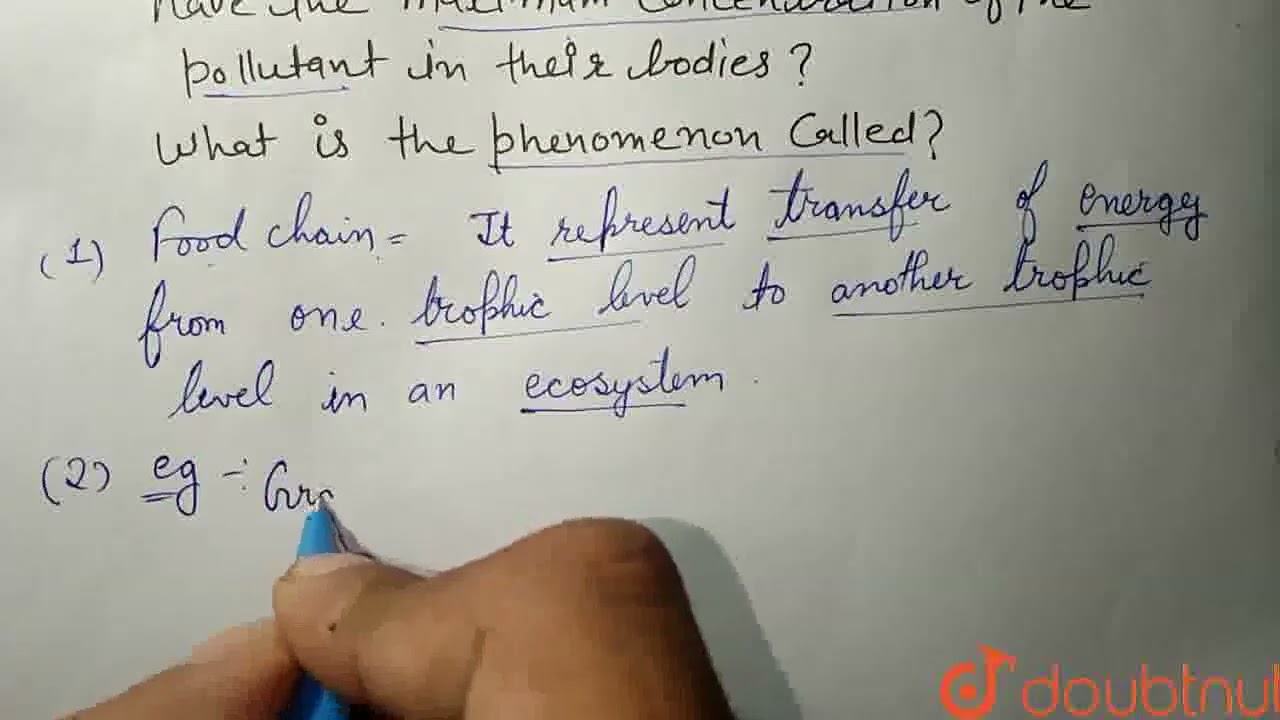 have the maximum concentration of the
pollutant in their bodies?
What is the phenomenon Called?
(1) Food chain = It represent transfer of energy
from one. trophic level to another trophic
level in an ecosystem.
(2) eg -: Gra
doubtnut